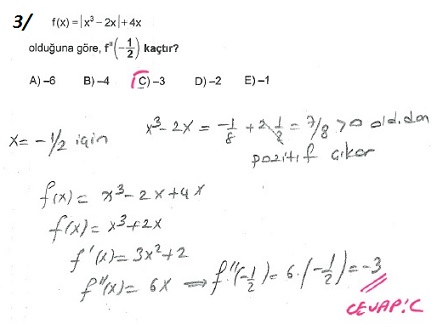 3/ f(x) = |x³ – 2x| + 4x
olduğuna göre, f''(–1/2) kaçtır?
A) –6 B) –4 C) –3 D) –2 E) –1
x = -1/2 için x³ - 2x = -1/8 + 2·1/2 = 7/8 > 0 old.dan
pozitif çıkar
f(x) = x³ - 2x + 4x
f(x) = x³ + 2x
f'(x) = 3x² + 2
f''(x) = 6x ⟹ f''(-1/2) = 6·(-1/2) = -3
CEVAP: C